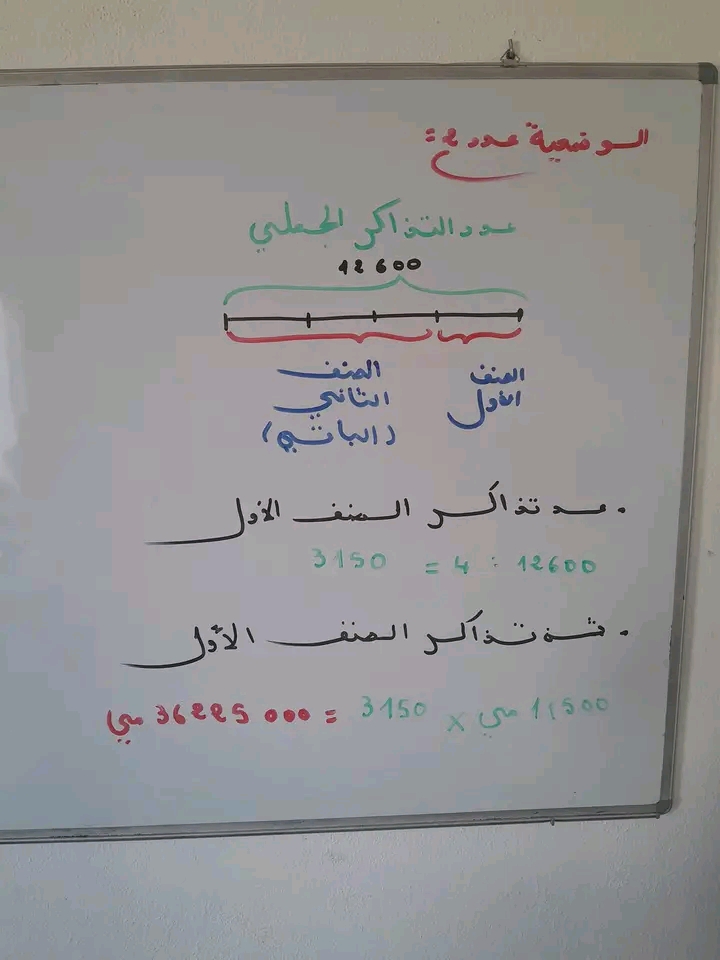 الوضعية عدد 2 :
عدد التذاكر الجملي
12600
الصنف الأول
الصنف الثاني (الباقي)
. عدد تذاكر الصنف الأول
12600 : 4 = 3150
. ثمن تذاكر الصنف الأول
11500 مي × 3150 = 36225 000 مي